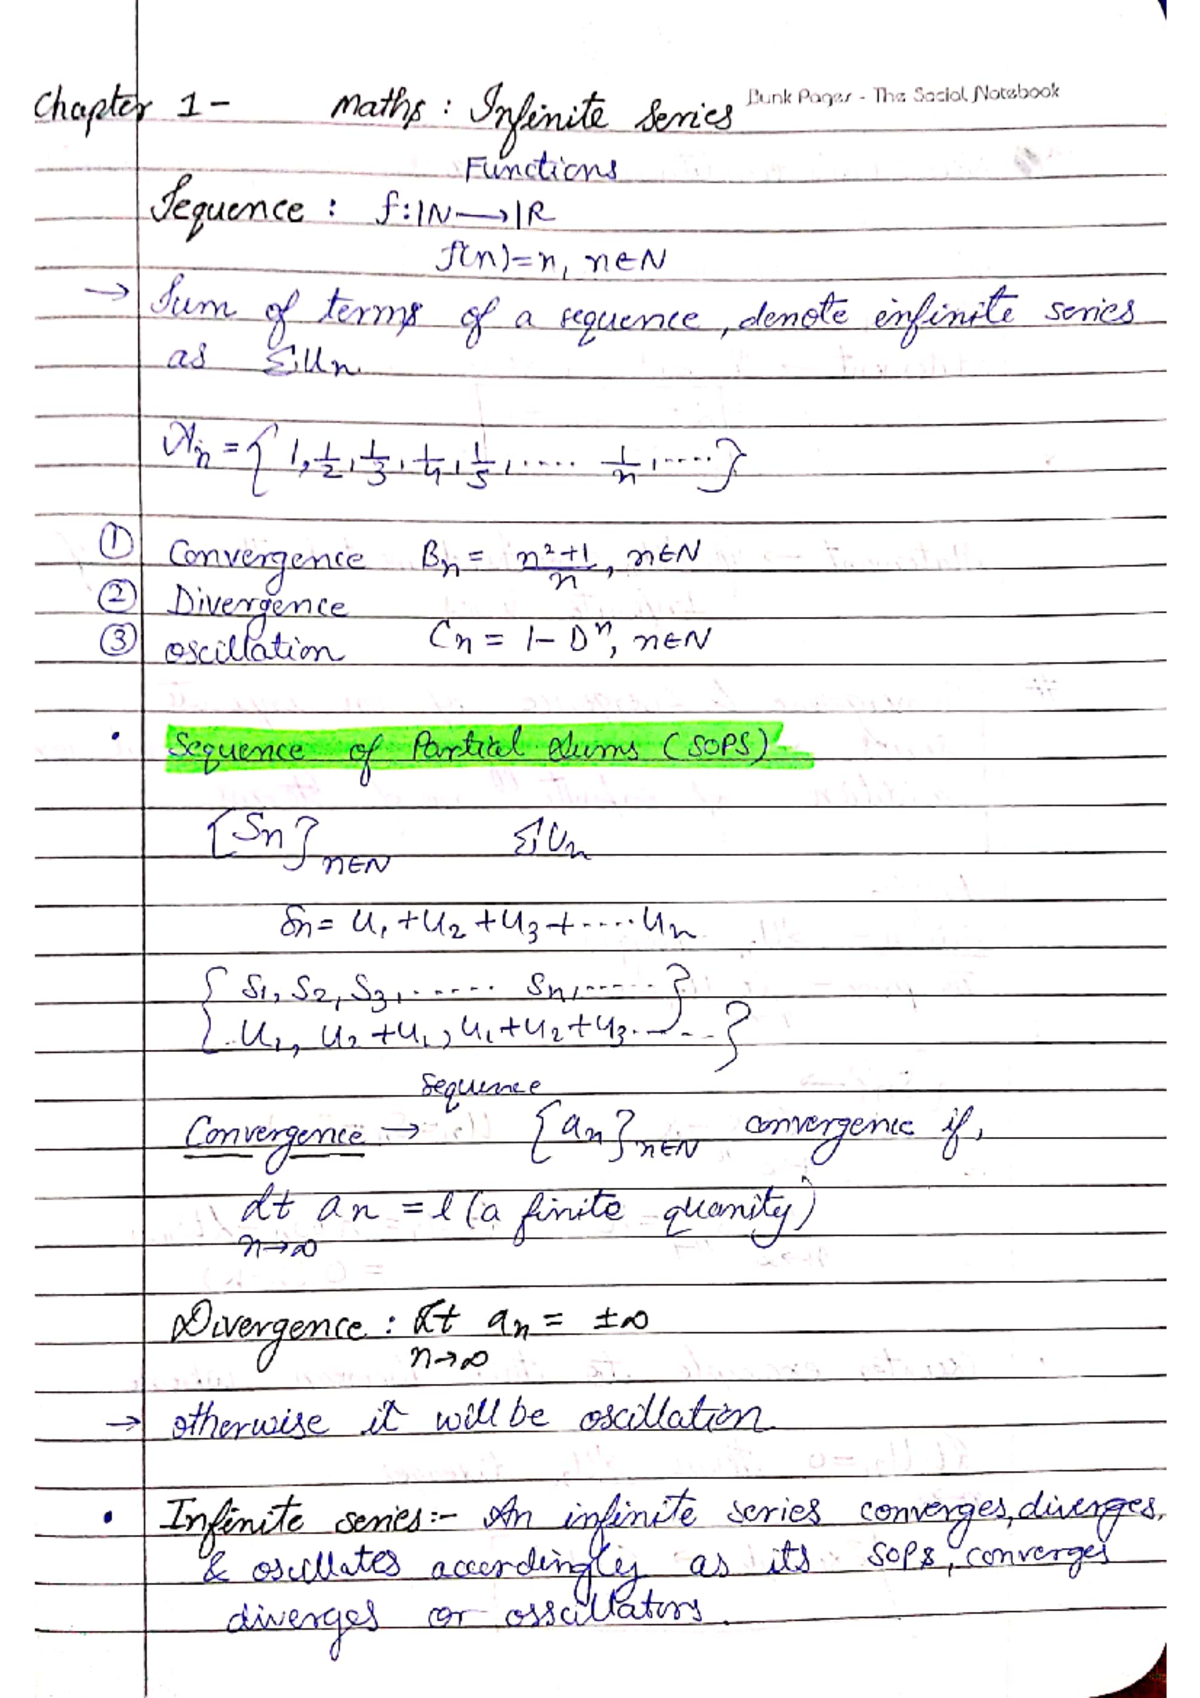 Chapter 1- Maths: Infinite Series Bunk Pages - The Social Notebook
Functions
Sequence : f:|N⟶|R
f(n)=n, n∈N
→ Sum of terms of a sequence, denote infinite series
as ΣUn
= { 1, 1/2, 1/3, 1/4, 1/5, .... 1/n, .... }
① Convergence Bn = n²+1/n, n∈N
② Divergence
③ oscillation Cn = 1- D^n, n∈N
• Sequence of Partial Sums (SOPS)
{Sn}n∈N ΣUn
Sn = U1 + U2 + U3 + .... Un
{ S1, S2, S3, ...... Sn, ..... }
{ U1, U2 + U1, U1 + U2 + U3 ... .. }
Sequence
Convergence → {an}n∈N convergence if,
Lt an = l (a finite quanity)
n→∞
Divergence : Lt an = ±∞
n→∞
→ otherwise it will be oscillation
• Infinite series:- An infinite series converges, diverges,
& oscillates accordingly as its SOPS, converges
diverges or osscillators.